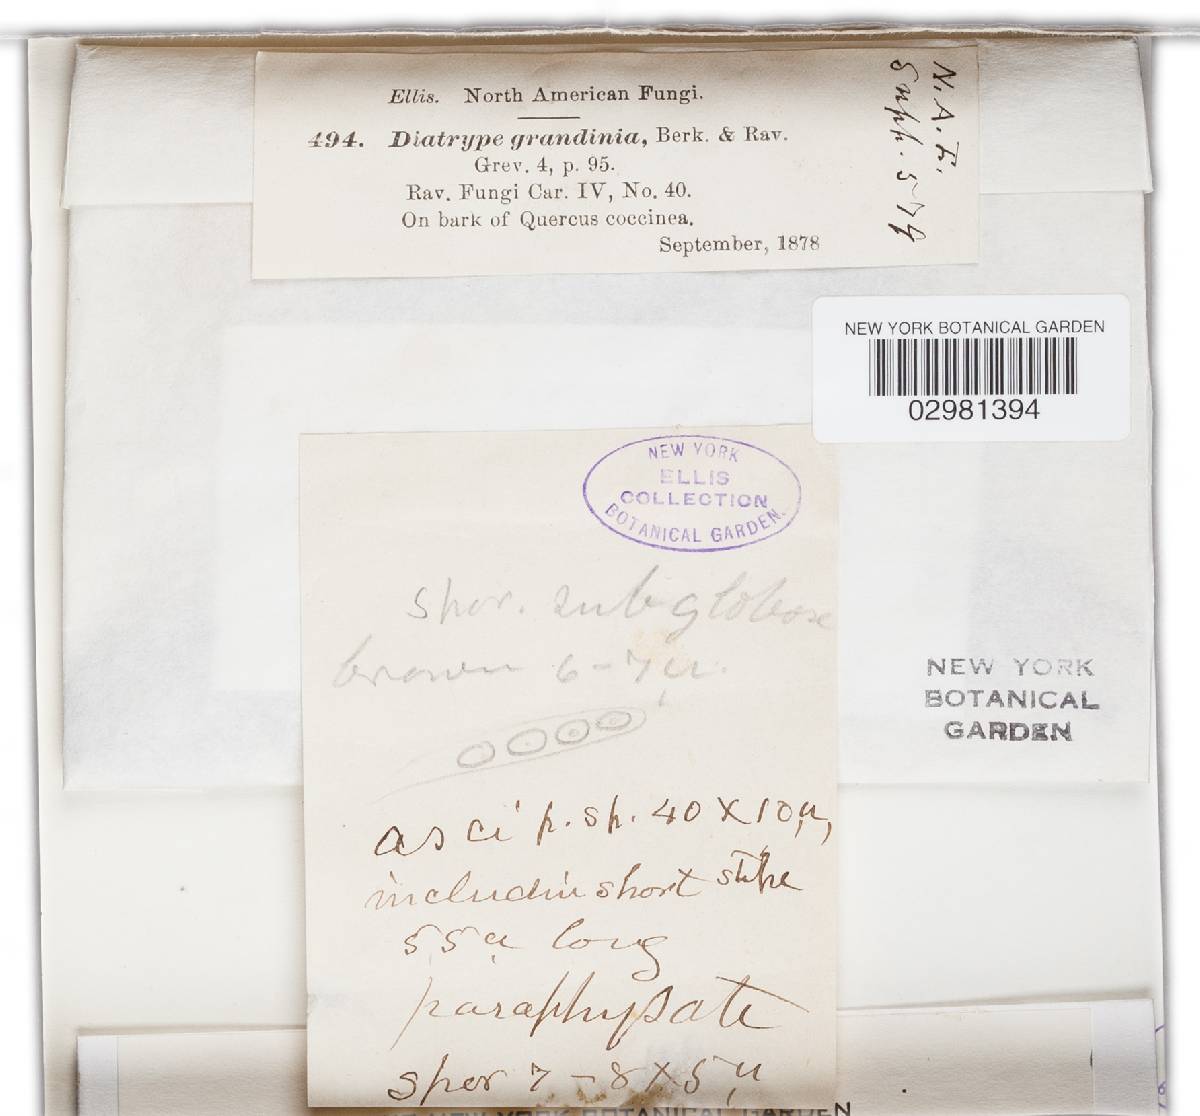 Ellis. North American Fungi.
494. Diatrype grandinia, Berk. & Rav.
Grev. 4, p. 95.
Rav. Fungi Car. IV, No. 40.
On bark of Quercus coccinea.
September, 1878
N. A. F.
Supp. 579
NEW YORK BOTANICAL GARDEN
02981394
NEW YORK
ELLIS
COLLECTION
BOTANICAL GARDEN.
spor. subglobose
brown 6-7µ.
NEW YORK
BOTANICAL
GARDEN
asci p. sp. 40 X 10µ,
includin short stipe
55µ long
paraphysate
spor 7-8 X 5µ
NEW YORK BOTANICAL GARDEN